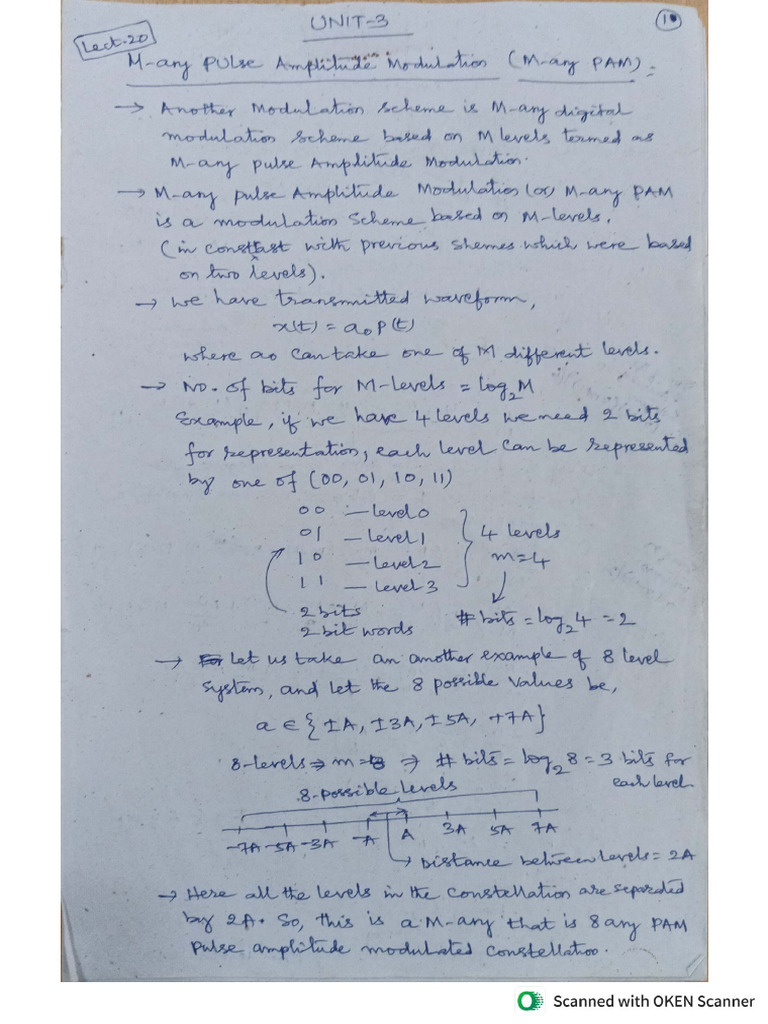 UNIT-3
10
Lect-20
M-any PULse Amplitude Modulation (M-any PAM) =
→ Another Modulation scheme is M-any digital
modulation scheme based on M levels termed as
M-any pulse Amplitude Modulation.
→ M-any pulse Amplitude Modulation (or) M-any PAM
is a modulation Scheme based on M-levels.
(in contrast with previous shemes which were based
on two levels).
→ we have transmitted waveform,
x(t) = a₀ p(t)
where a₀ can take one of M different levels.
→ No. of bits for M-levels = log₂M
Example, if we have 4 levels we need 2 bits
for representation, each level can be represented
by one of (00, 01, 10, 11)
00 — level 0
01 — Level 1
10 — Level 2
11 — Level 3
4 levels
m=4
2 bits
2 bit words
# bits = log₂4 = 2
→ For Let us take an another example of 8 level
system, and let the 8 possible values be,
a ∈ {±A, ±3A, ±5A, +7A}
8-levels ⇒ m=8 ⇒ # bits = log₂8 = 3 bits for
each level
8-possible levels
-7A -5A -3A -A A 3A 5A 7A
→ Distance between levels = 2A
→ Here all the levels in the constellation are separated
by 2A. So, this is a M-any that is 8 any PAM
pulse amplitude modulated constellation.
Scanned with OKEN Scanner